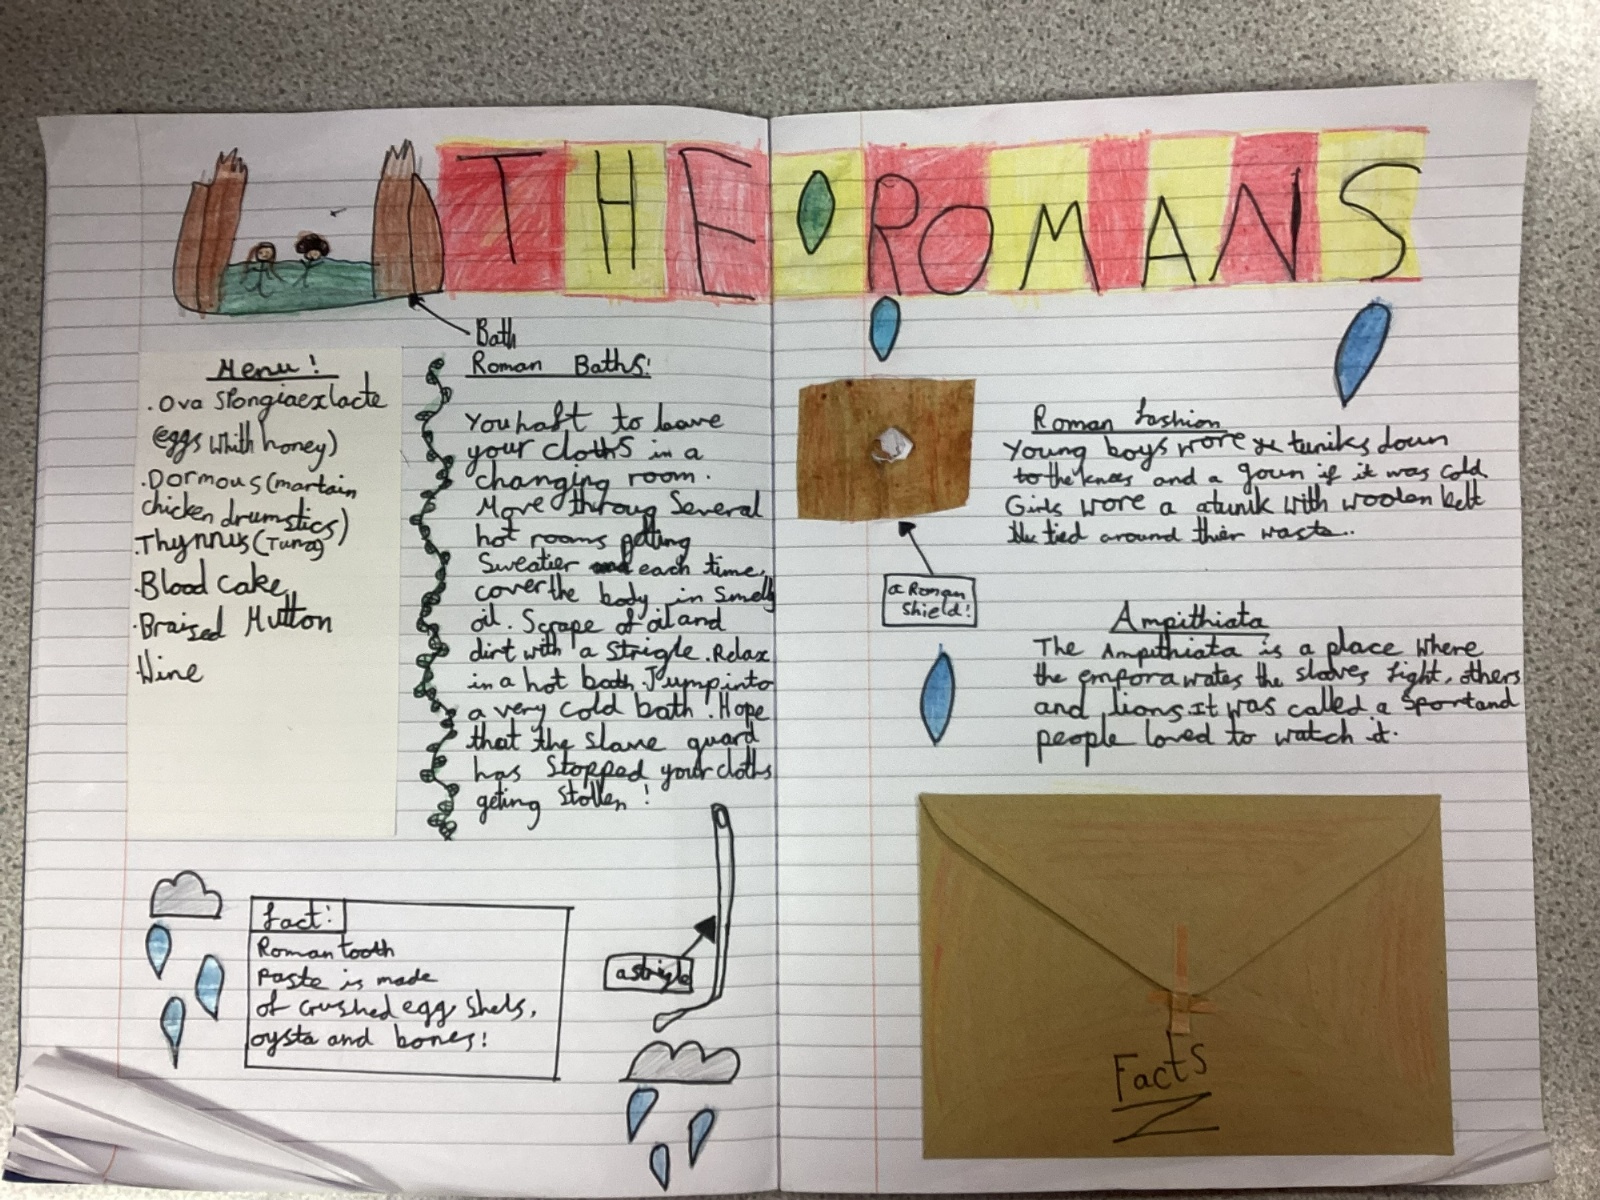 THE ROMANS
Bath
Menu!
. Ova spongiaexlacte
(eggs whith honey)
. Dormous (martain
chicken drumstics)
. Thynnus (Tuna)
. Blood cake
. Braised Mutton
Wine
Roman Baths!
You haft to leave
your cloths in a
changing room.
Move throug several
hot rooms getting
Sweatier each time.
cover the body in smelly
oil. Scrape of oil and
dirt with a strigle. Relax
in a hot bath. Jump into
a very cold bath! Hope
that the slave guard
has stopped your cloths
geting stollen!
fact:
Roman tooth
paste is made
of crushed egg shels,
oysta and bones!
a strigle
a Roman
shield!
Roman fashion
Young boys wore tuniks down
to the knees and a goun if it was cold
Girls wore a atunik with woolen belt
tied around thier waste..
Ampithiata
The Ampithiata is a place where
the empora wates the slaves fight, others
and lions. It was called a sport and
people loved to watch it.
Facts